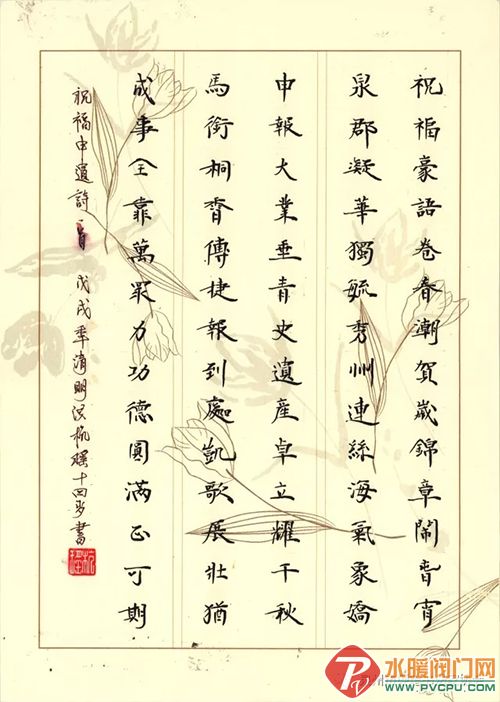 祝福豪語卷春潮賀歲錦章鬧旾宵
泉郡凝華獨毓秀州連絲海氣象嬌
申報大業垂青史遺產卓立耀千秋
馬銜桐傳捷報到處凱歌展壯猶
成事全靠萬眾力功德圓滿正可期
祝福申遺詩一首 戊戌年清明 航十四岁書
PV 水暖阀门网
WWW.PVCPU.COM